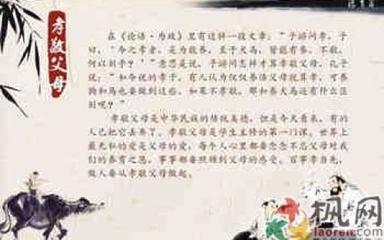 孝敬父母
在《论语·为政》里有这样一段文章：“子游问孝，子
曰，“今之孝者，是为能养，至于犬马，皆能有养，不敬，
何以别乎？”意思是说，子游问怎样才算孝敬父母，孔子
说：“如今说的孝子，有人认为仅仅养活父母就算孝，可养
狗和马也要做到这些，如果不孝敬，那和养犬马还有什么区
别呢？”
孝敬父母是中华民族的传统美德，但是今天看来，有的
人已把它丢去了。孝敬父母是学生主持的第一门课。世界上
最无私的爱是父母的爱，每个人心里都要念念不忘父母对我
们的养育之恩，事事都要照顾到父母的感受。百事孝当先，
做人要从孝敬父母做起。
枫网
laoren.com